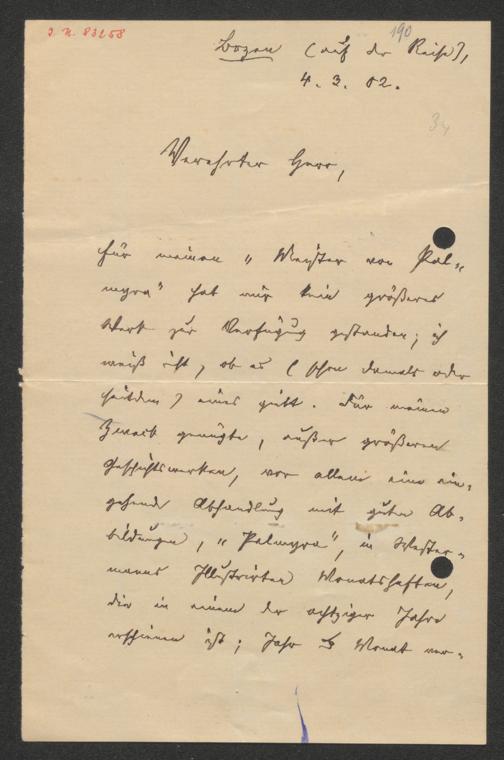 J. N. 83258
190
Bozen (auf der Reise),
4. 3. 02.
34
Verehrter Herr,
für meinen „Meister von Pal-
myra" hat mir kein größeres
Werk zur Verfügung gestanden; ich
weiß nicht, ob es (schon damals oder
seitdem) eines gibt. Für meinen
Zweck genügte, außer größeren
Geschichtswerken, vor allem eine ein-
gehende Abhandlung mit guten Ab-
bildungen, „Palmyra", in Wester-
manns Illustrirten Monatsheften,
die in einem der achtziger Jahre
erschienen ist; Jahr u. Monat ver-